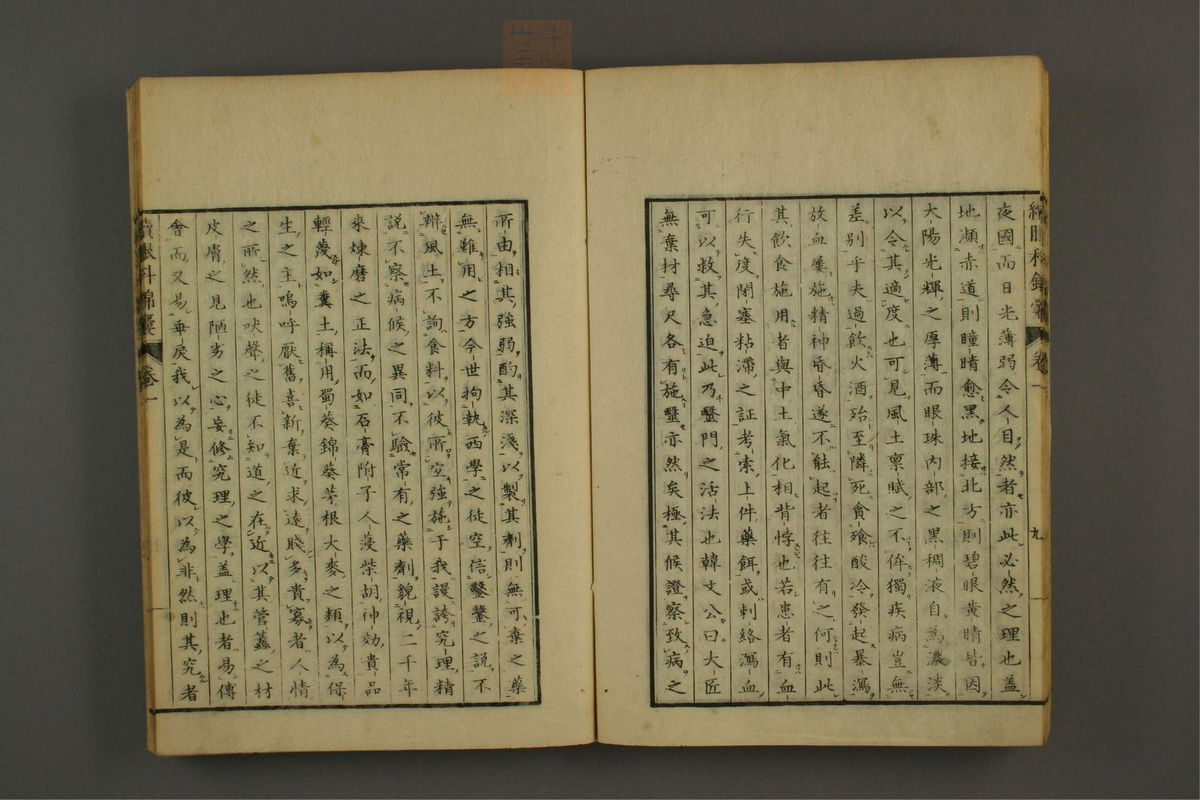 續眼科錦囊 卷一 九
夜國而日光薄弱令人目然者亦此必然之理也蓋
地瀕赤道則瞳睛愈黑地接北方則碧眼黃睛皆因
大陽光輝之厚薄而眼珠內部之黑稠液自為濃淡
以令其適度也可見風土稟賦之不侔獨疾病豈無
差別乎夫過飲火酒殆至隣死食飱酸冷發起暴瀉
放血屢施精神昏昏遂不能起者往往有之何則此
其飲食施用者與中土氣化相背悖也若患者有血
行失度閉塞粘滯之証考索上件藥餌或刺絡瀉血
可以救其急迫此乃毉門之活法也韓文公曰大匠
無棄材尋尺各有施毉亦然矣極其候證察致病之
所由相其強弱酌其深淺以製其劑則無可棄之藥
無難用之方今世狥執西學之徒空信鑿鑿之說不
辨風土不詢食料以彼所宜強施于我謾誇究理精
說不察病候之異同不驗常有之藥劑貌視二千年
來煉磨之正法而如石膏附子人葠柴胡神効貴品
輕蔑如糞土稱用蜀葵錦葵茅根大麥之類以為保
生之主嗚呼厭舊喜新棄近求遠賤多貴寡者人情
之所然也吠聲之徒不知道之在近以其管蠡之材
皮膚之見陋劣之心妄修究理之學蓋理也者易傳
會而又易乖戾我以為是而彼以為非然則其究者
續眼科錦囊 卷一